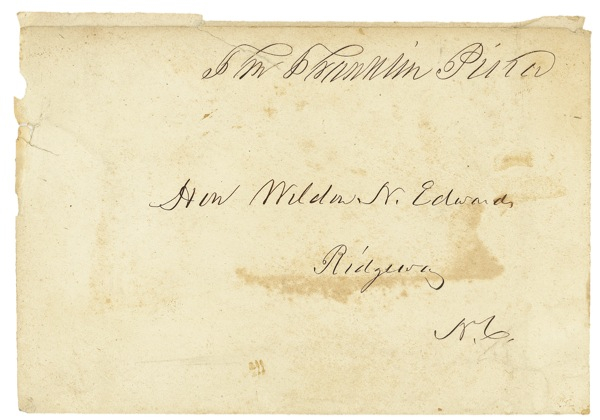 Franklin Pierce
Hon Weldon N. Edwards
Ridgeway
N.C.